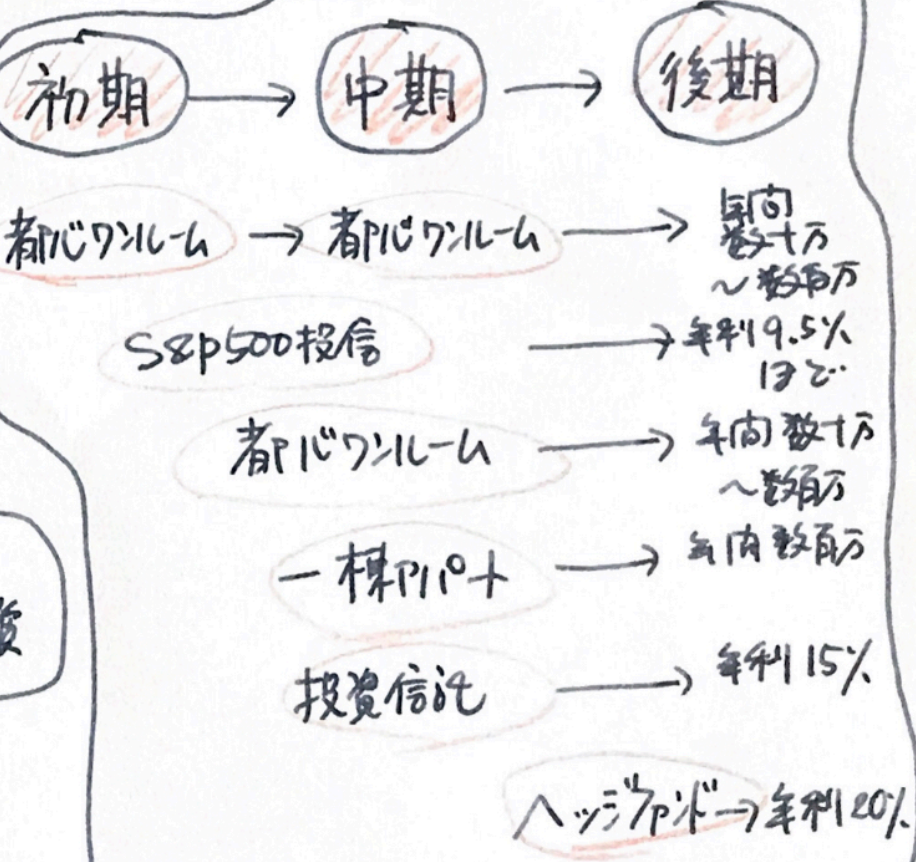 初期 → 中期 → 後期
都心ワンルーム → 都心ワンルーム → 年間
数十万
〜数百万
S&P500投信 → 年利9.5%
ほど
都心ワンルーム → 年間数十万
〜数百万
一棟アパート → 年間数百万
投資信託 → 年利15%
ヘッジファンド → 年利20%